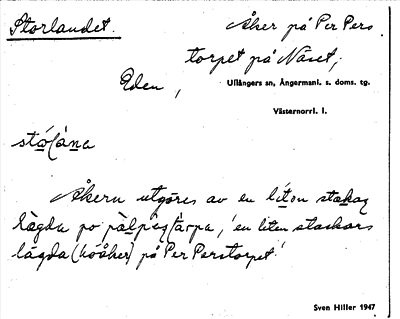 Storlandet.
Åker på Per Pers
torpet på Näset,
Eden,
Ullångers sn, Ångermanl. s. doms. tg.
Västernorrl. l.
Åkern utgöres av en liten
lägda po 'en liten stackars
lägda (höåker) på Per Perstorpet'
Sven Hiller 1947